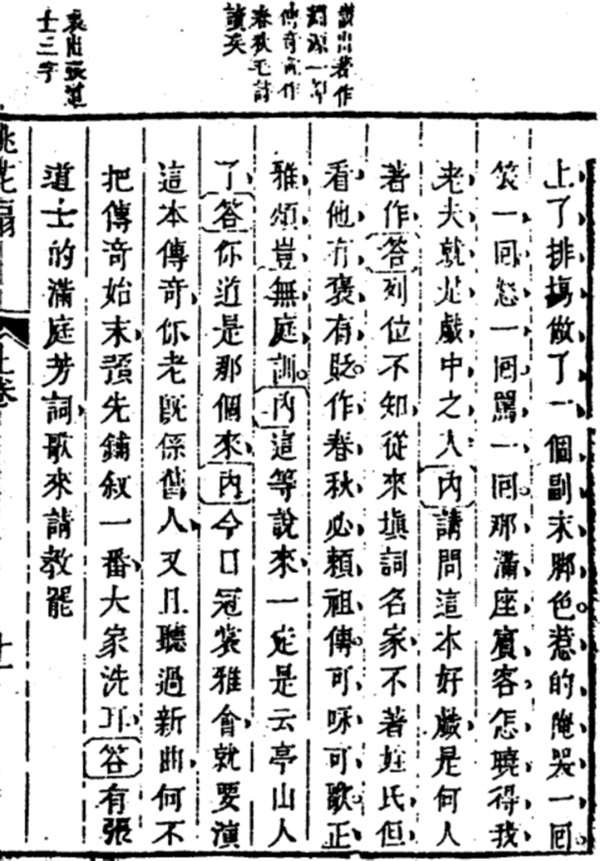 說出著作
淵源一部
傳奇當作
春秋毛詩
讀矣
表出張道
士三字
上了排塲做了一個副末脚色惹的俺哭一回
笑一回怒一回罵一回那滿座賓客怎曉得我
老夫就是戲中之人内請問這本好戲是何人
著作答列位不知從來塡詞名家不著姓氏但
看他有褒有貶作春秋必賴祖傳可咏可歌正
雅頌豈無庭訓内這等說來一定是云亭山人
了答你道是那個來内今日冠裳雅會就要演
這本傳奇你老旣係舊人又且聽過新曲何不
把傳奇始末預先鋪叙一番大家洗耳答有張
道士的滿庭芳詞歌來請教罷
桃花扇
上卷